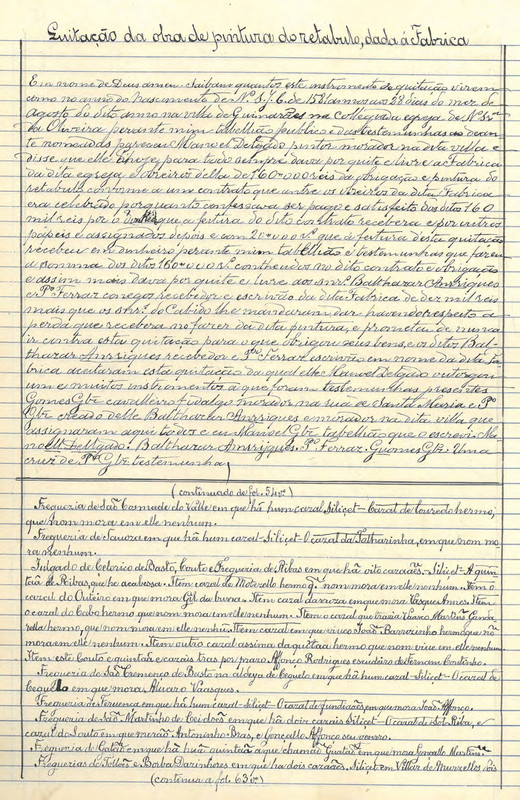 Quitação da obra de pintura do retabulo, dada á Fabrica
Em nome de Deus amen. Saibam quantos este instrumento de quitação virem
como no anno do Nascimento de N. S. J. C. de 15 annos aos 28 dias do mez de
agosto do dito anno na villa de Guimarães na Collegiada egreja de N. Sr.ª
da Oliveira perante mim tabellião publico e das testemunhas ao dean
te nomeadas pareceu Manoel Delgado pintor morador na dita villa e
disse que elle d'hoje para todo sempre dava por quite e livre a Fabrica
da dita egreja e obreiros della de 160$000 reis da obrigação e pintura do
retabulo conforme a um contrato que antre os obreiros da dita Fabrica
era celebrado porquanto confessava ser pago e satisfeito dos ditos 160
mil reis por o que a feitura do dito contrato recebera e por outros
papeis e assignados depois e com 20$000 r.s que á feitura desta quitação
recebeu em dinheiro perante mim tabellião e testemunhas que fazem
a somma dos ditos 160$000 r.s contheudos no dito contrato e obrigação
e assim mais dava por quite e livre aos snr.s Balthazar Anrriques
e P.º Ferraz conegos recebedor e escrivão da dita Fabrica de dez mil reis
mais que os snr.s do Cabido lhe mandaram dar havendo respeito á
perda que recebera no fazer da dita pintura, e prometeu de nunca
ir contra esta quitação para o que obrigou seus bens, e os ditos Bal-
thazar Anrriques recebedor e P.º Ferraz escrivão em nome da dita fa-
brica aceitaram esta quitação da qual elle Manoel Delgado outorgou
um e muitos instrumentos á que foram testemunhas presentes
Gomes Glz cavalleiro fidalgo morador na rua de Santa Maria e P.º
Glz creado delle Balthazar Anrriques e morador na dita villa que
assignaram aqui todos e eu Manoel Glz tabellião que o escrevi. Ma-
noel Delgado. Balthazar Anrriques. P.º Ferraz. Guomes Glz. Uma
cruz de P.º Glz testemunha.
(continuado de fol. 54 v.º)
Freguezia de São Cosmade do Valle em que há hum cazal silicet - Cazal de Louredo hermo,
que nom mora em elle nenhum.
Freguezia de Gauza em que há hum cazal - Silicet - O cazal da Talharinha, em que nom mo-
ra nenhum.
Julgado de Celorico de Basto, Couto e Freguezia de Ribas em que há oito cazaães. - Silicet - A quin-
taã de Ribas, que he a cabessa. Item cazal de Motezello hermo q. nom mora em elle nenhum. Item o
cazal do Outeiro em que mora Gil da buna. Item cazal da ruza em que mora Vasque Annes. Item
o cazal do Cabo hermo que nom mora em elle nenhum. Item o cazal que trazia Vasco Martins Gana
rella hermo, que nom mora em elle nenhũ. Item cazal em que viveo João Barrozinho hermo que nõ
mora em elle nenhum. Item outro cazal assima da quitaã hermo que nom vive em elle nenhum
Item este Couto e quintaã e cazaãs traz por prazo Affonço Rodrigues escudeiro de Fernam Coutinho.
Freguezia de São Cremenço de Basto na aldeya de Cequelo em que há hum cazal - Silicet - O cazal de
Cequelo em que mora Alvaro Vaasques.
Freguezia de Fervença em que há hum cazal - Silicet - O cazal de fundiçaães em que mora João Affonço.
Freguezia de São Martinho de Ceidões em que há dois cazaes Silicet - O cazal de Sol-Riba, e
cazal do Souto em que morão Antoninho Bras, e Gonçallo Affonço seu genrro.
Freguezia de Gagão em que há huã quintaã q. chamão Guataã em que mora Gonçallo Martins.
Freguezias de Tellões e Borba Darinhores em que ha dois cazaães. Silicet em Villar de Murzellos dois
(continua a fol. 63 v.º)